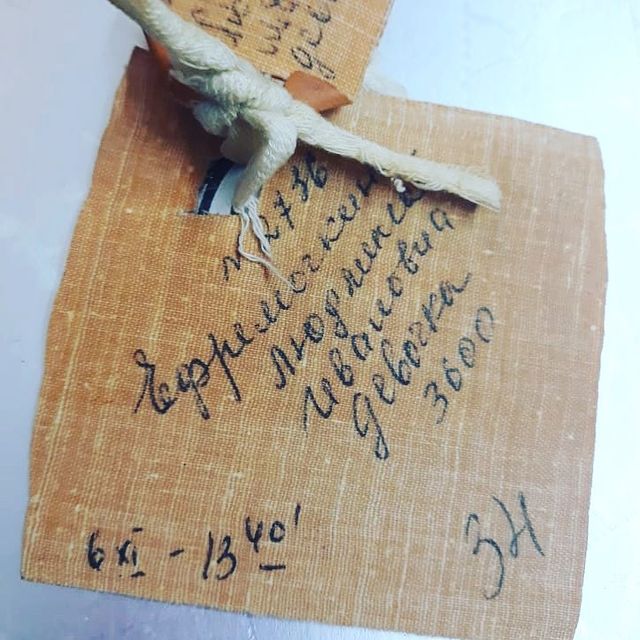 N 2736
Ефремочкина
Людмила
Ивановна
девочка
3600
6 XI - 13 40'
ЗН